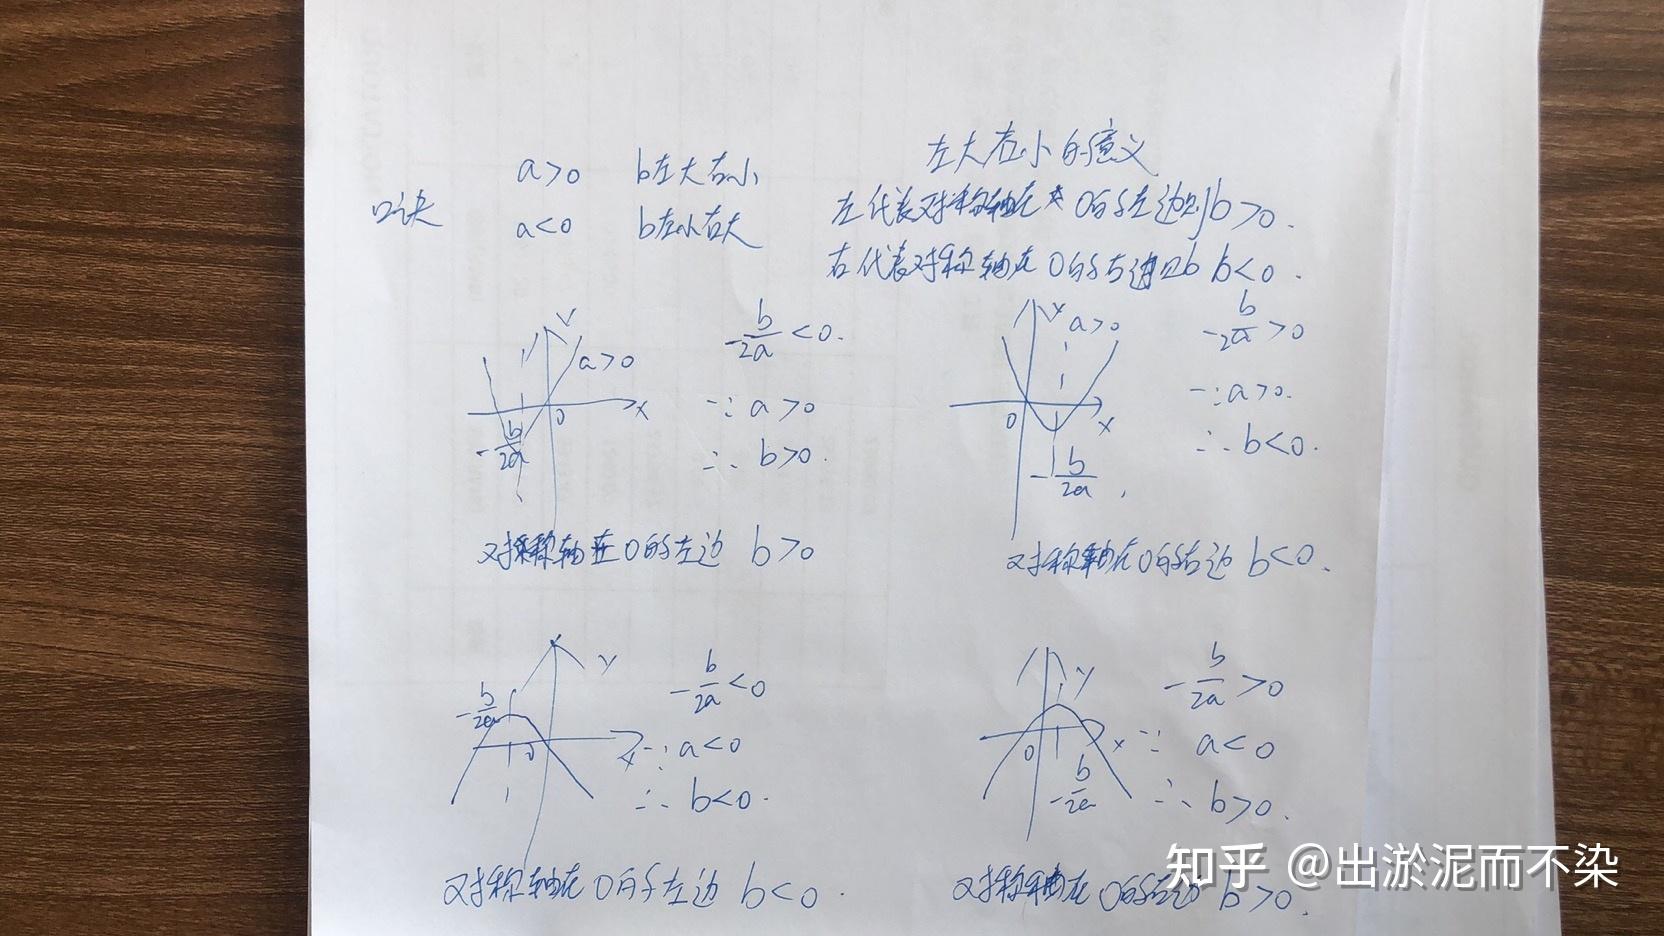 口诀
a>0 b左大右小
a<0 b左小右大
左大右小的意义
左代表对称轴在0的左边则b>0.
右代表对称轴在0的右边则b b<0.
y
a>0
x
0
-b/2a
-b/2a<0.
∵a>0
∴b>0.
对称轴在0的左边 b>0
y
a>0
x
0
-b/2a,
-b/2a>0
∵a>0.
∴b<0.
对称轴在0的右边 b<0.
y
-b/2a
0
x
-b/2a<0
∵a<0
∴b<0.
对称轴在0的左边 b<0.
y
0
x
-b/2a
-b/2a>0
∵a<0
∴b>0.
对称轴在0的右边 b>0.
知乎 @出淤泥而不染